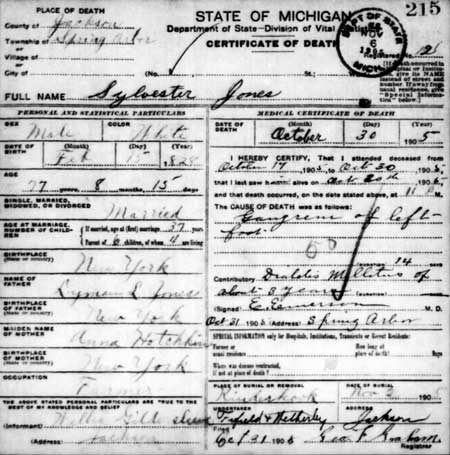 215
PLACE OF DEATH
County of Jackson
Township of Spring Arbor
Village of
City of
(No.
St.;
STATE OF MICHIGAN
Department of State—Division of Vital Statistics
CERTIFICATE OF DEATH
DEPT OF STATE
NOV
6
MICH
Registered No.
FULL NAME Sylvester Jones
PERSONAL AND STATISTICAL PARTICULARS
SEX
Male
COLOR
White
DATE OF BIRTH
(Month)
(Day)
(Year)
Feb 15 1828
AGE
77 years, 8 months, 15 days
SINGLE, MARRIED, WIDOWED, OR DIVORCED
Married
AGE AT MARRIAGE, NUMBER OF CHILDREN
If married, age at (first) marriage 37 years
Parent of 6 children, of whom 4 are living
BIRTHPLACE
(State or country)
New York
NAME OF FATHER
Lyman L Jones
BIRTHPLACE OF FATHER
(State or country)
New York
MAIDEN NAME OF MOTHER
Anna Hotchkin
BIRTHPLACE OF MOTHER
(State or country)
New York
OCCUPATION
Farmer
THE ABOVE STATED PERSONAL PARTICULARS ARE TRUE TO THE BEST OF MY KNOWLEDGE AND BELIEF
(Informant)
(Address) Jackson
MEDICAL CERTIFICATE OF DEATH
DATE OF DEATH
(Month)
(Day)
(Year)
October 30 1905
I HEREBY CERTIFY, That I attended deceased from
October 14 1905 to Oct 30 1905,
that I last saw him alive on Oct 30th 1905,
and that death occurred, on the date stated above, at 11
The CAUSE OF DEATH was as follows:
Gangrene of left
foot
50
14 DAYS
Contributory Diabetis Millitus of
about 3 Years
(Signed) E. Emerson M. D.
Oct 31 1905 (Address) Spring Arbor
SPECIAL INFORMATION only for Hospitals, Institutions, Transients or Recent Residents:
Former or usual residence
How long at place of death? Days
Where was disease contracted, if not at place of death?
PLACE OF BURIAL OR REMOVAL
Kinderhook
DATE OF BURIAL
Nov 3 1905
UNDERTAKER
(Address)
Jackson
Oct 31 1905
Geo F Graham
Registrar